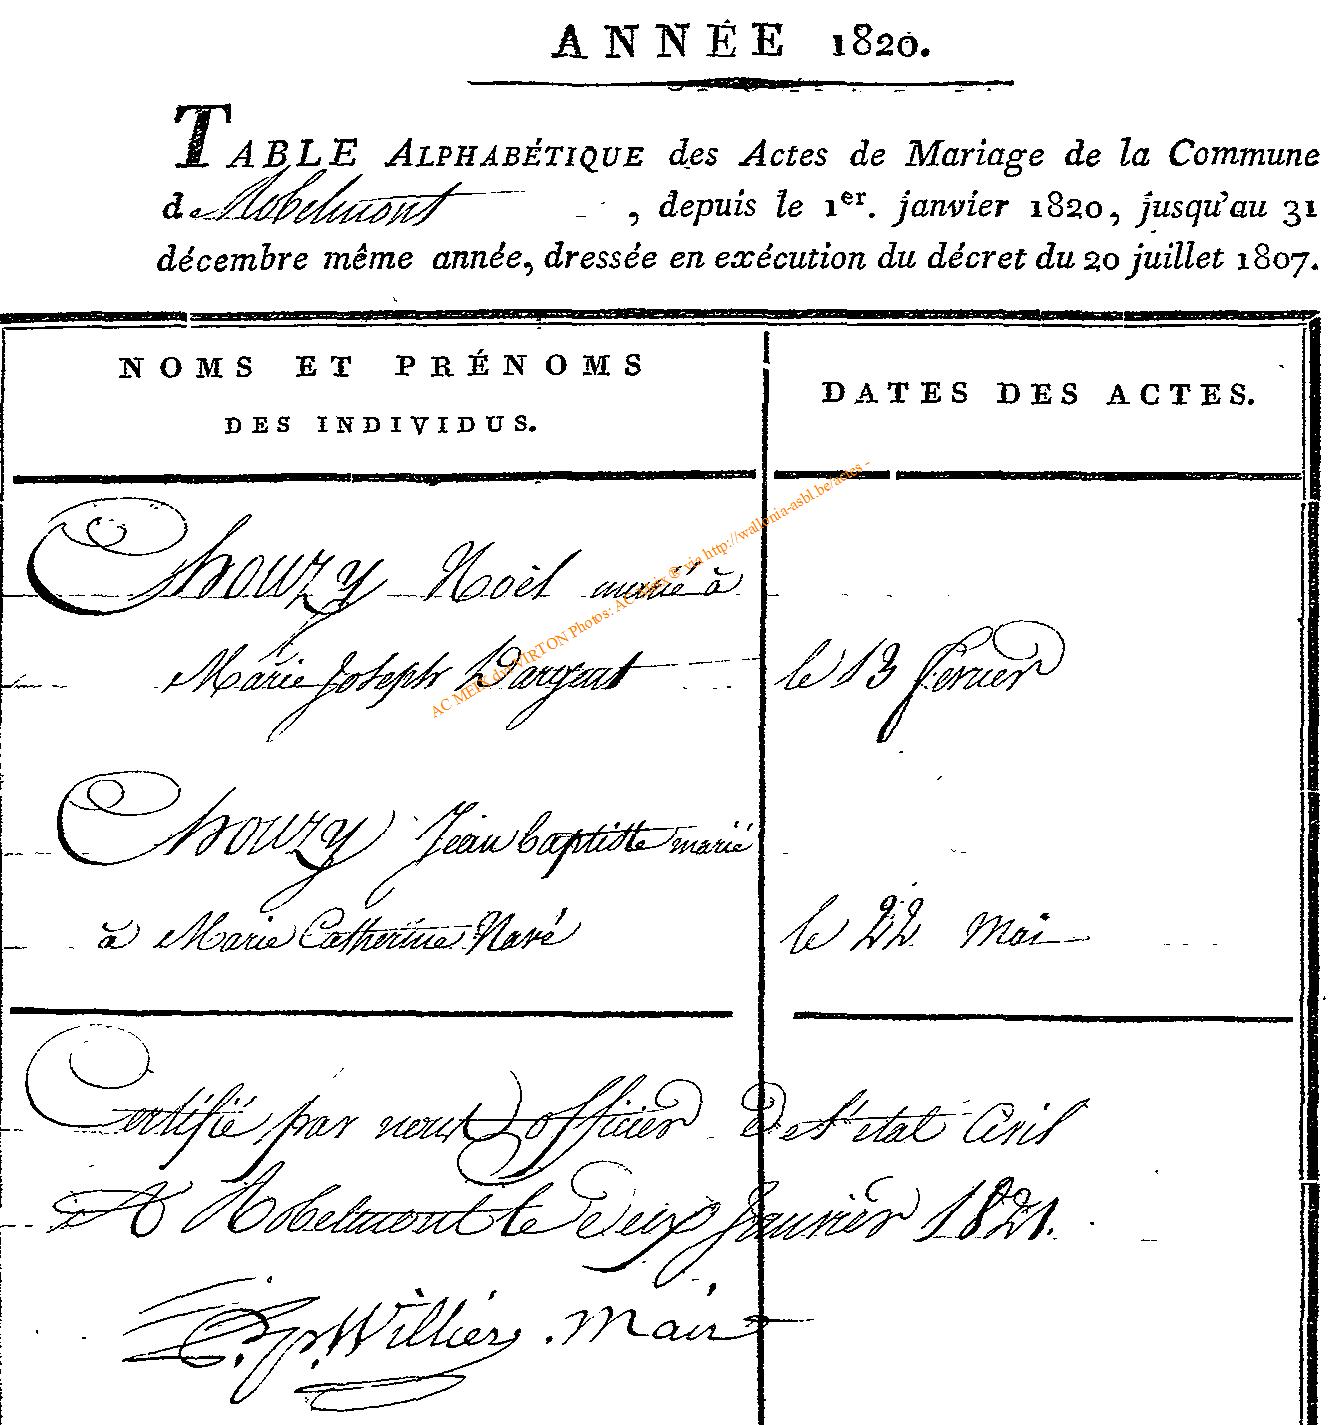 ANNÉE 1820.
TABLE ALPHABÉTIQUE des Actes de Mariage de la Commune
de Robelmont, depuis le 1er. janvier 1820, jusqu'au 31
décembre même année, dressée en exécution du décret du 20 juillet 1807.
NOMS ET PRÉNOMS
DES INDIVIDUS.
DATES DES ACTES.
Chouzy Noèl marié à
Marie Joseph Dargent le 13 février
Chouzy Jean baptiste marié
à Marie Catherine Navé le 22 Mai
Certifié par nous officier de l'état Civil
A Robelmont le deux Janvier 1821.
Willier. Maire
AC MER du VIRTON Photos: AC via http://wallonia-asbl.be/actes -